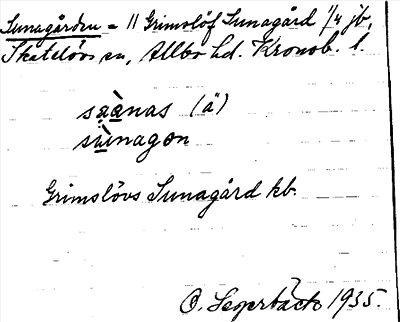 Sunagården = 11 Grimslöf Sunagård 1/4 jb,
Skatelövs sn, Allbo hd. Kronob. l.
sạạ̀nas (ä)
sùnagon
Grimslövs Sunagård kb.
O. Segerbäck 1935.